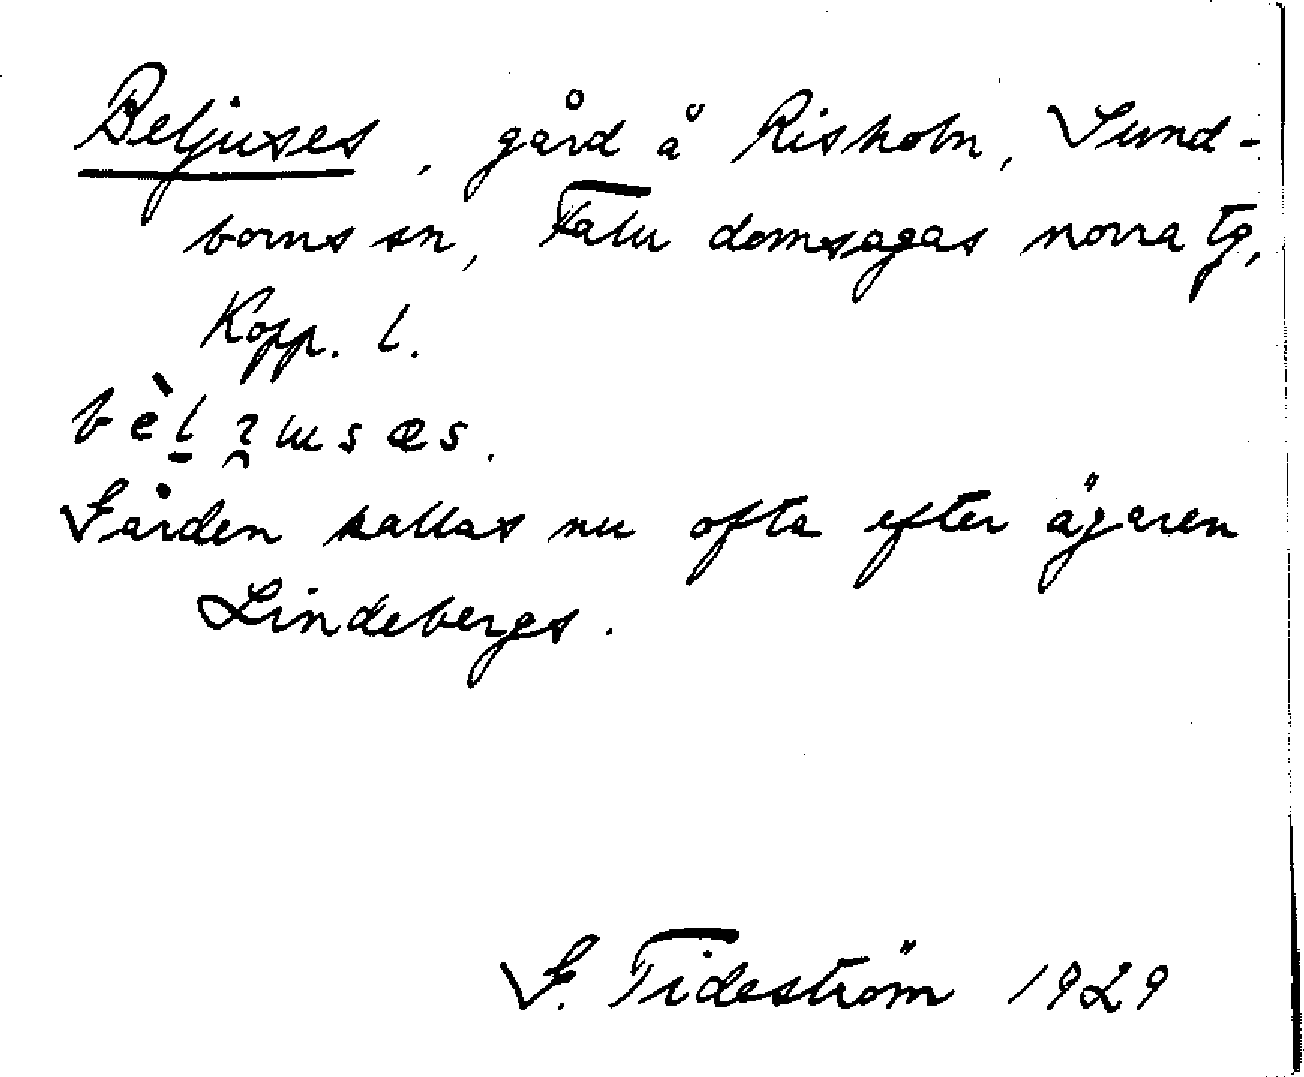 Beljuses, gård å Risholn, Sund-
borns sn, Falu domsagas norra tg,
Kopp. l.
Gården kallas nu ofta efter ägaren
Lindebergs.
G. Tideström 1929